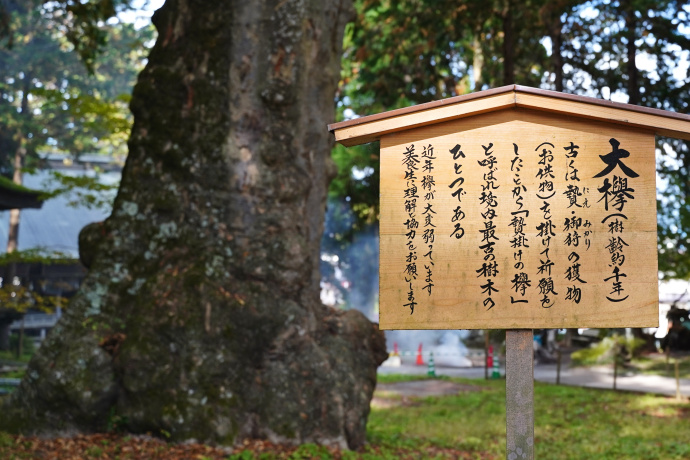 大欅(樹齢約千年)
古くは贄・御狩の獲物
にえ みかり
(お供物)を掛けて祈願を
したことから「贄掛けの欅」
と呼ばれ境内最古の樹木の
ひとつである
近年欅が大変弱っています
養生に理解と協力をお願いします